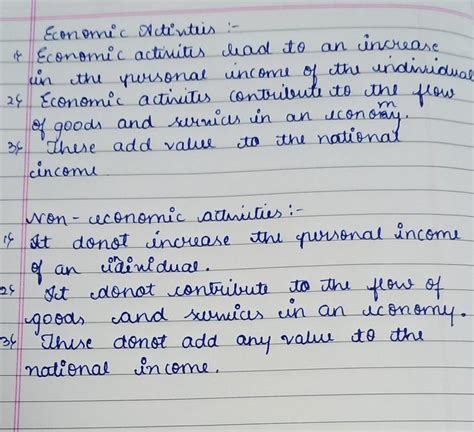 Economic Activities :-
1) Economic activities lead to an increase
in the personal income of the individual
2) Economic activites contribute to the flow
of goods and services in an economy.
3) These add value to the national
income
Non-economic activities :-
1) It donot increase the personal income
of an individual.
2) It donot contribute to the flow of
goods and services in an economy.
3) These donot add any value to the
national income.